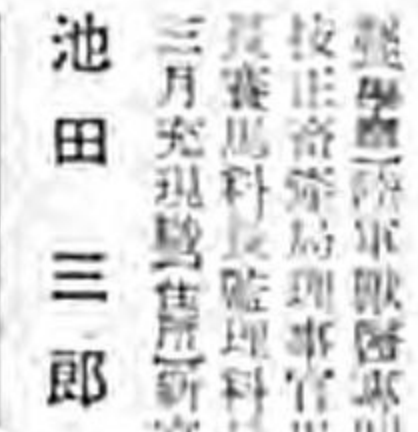 學歷】陸軍獸醫
技正畜產局理事官
長賽馬科長監理科
三月充現職【住所】新
池田三郎